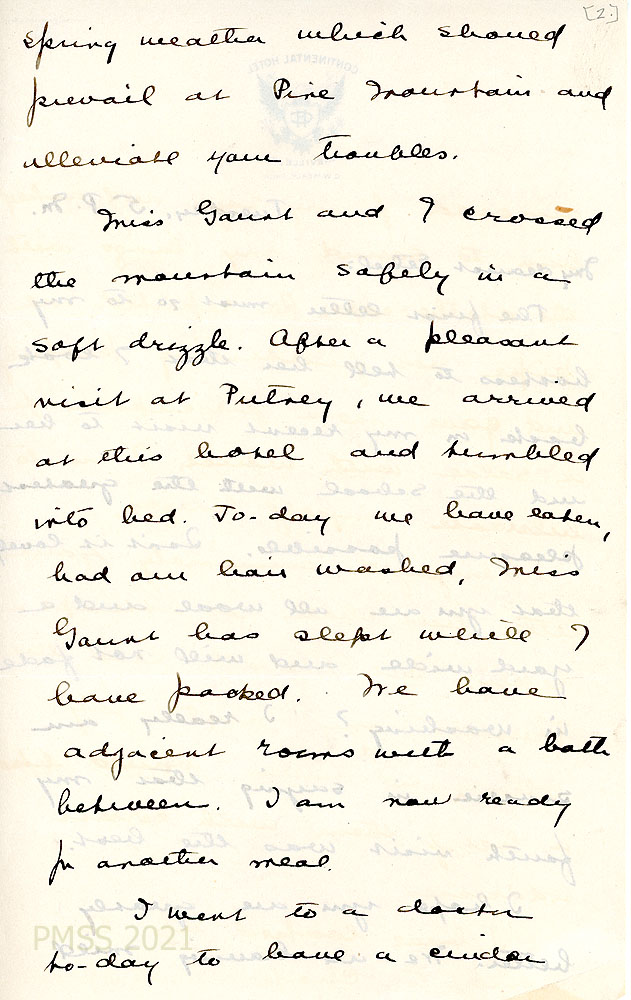 [2.]
spring weather which should
prevail at Pine Mountain and
alleviate your troubles.
Miss Gaunt and I crossed
the mountain safely in a
soft drizzle. After a pleasant
visit at Putney, we arrived
at this hotel and tumbled
into bed. To-day we have eaten,
had our hair washed, Miss
Gaunt has slept while I
have packed. We have
adjacent rooms with a bath
between. I am now ready
for another meal.
I went to a doctor
to-day to have a cinder
PMSS 2021
CONTINENTAL HOTEL